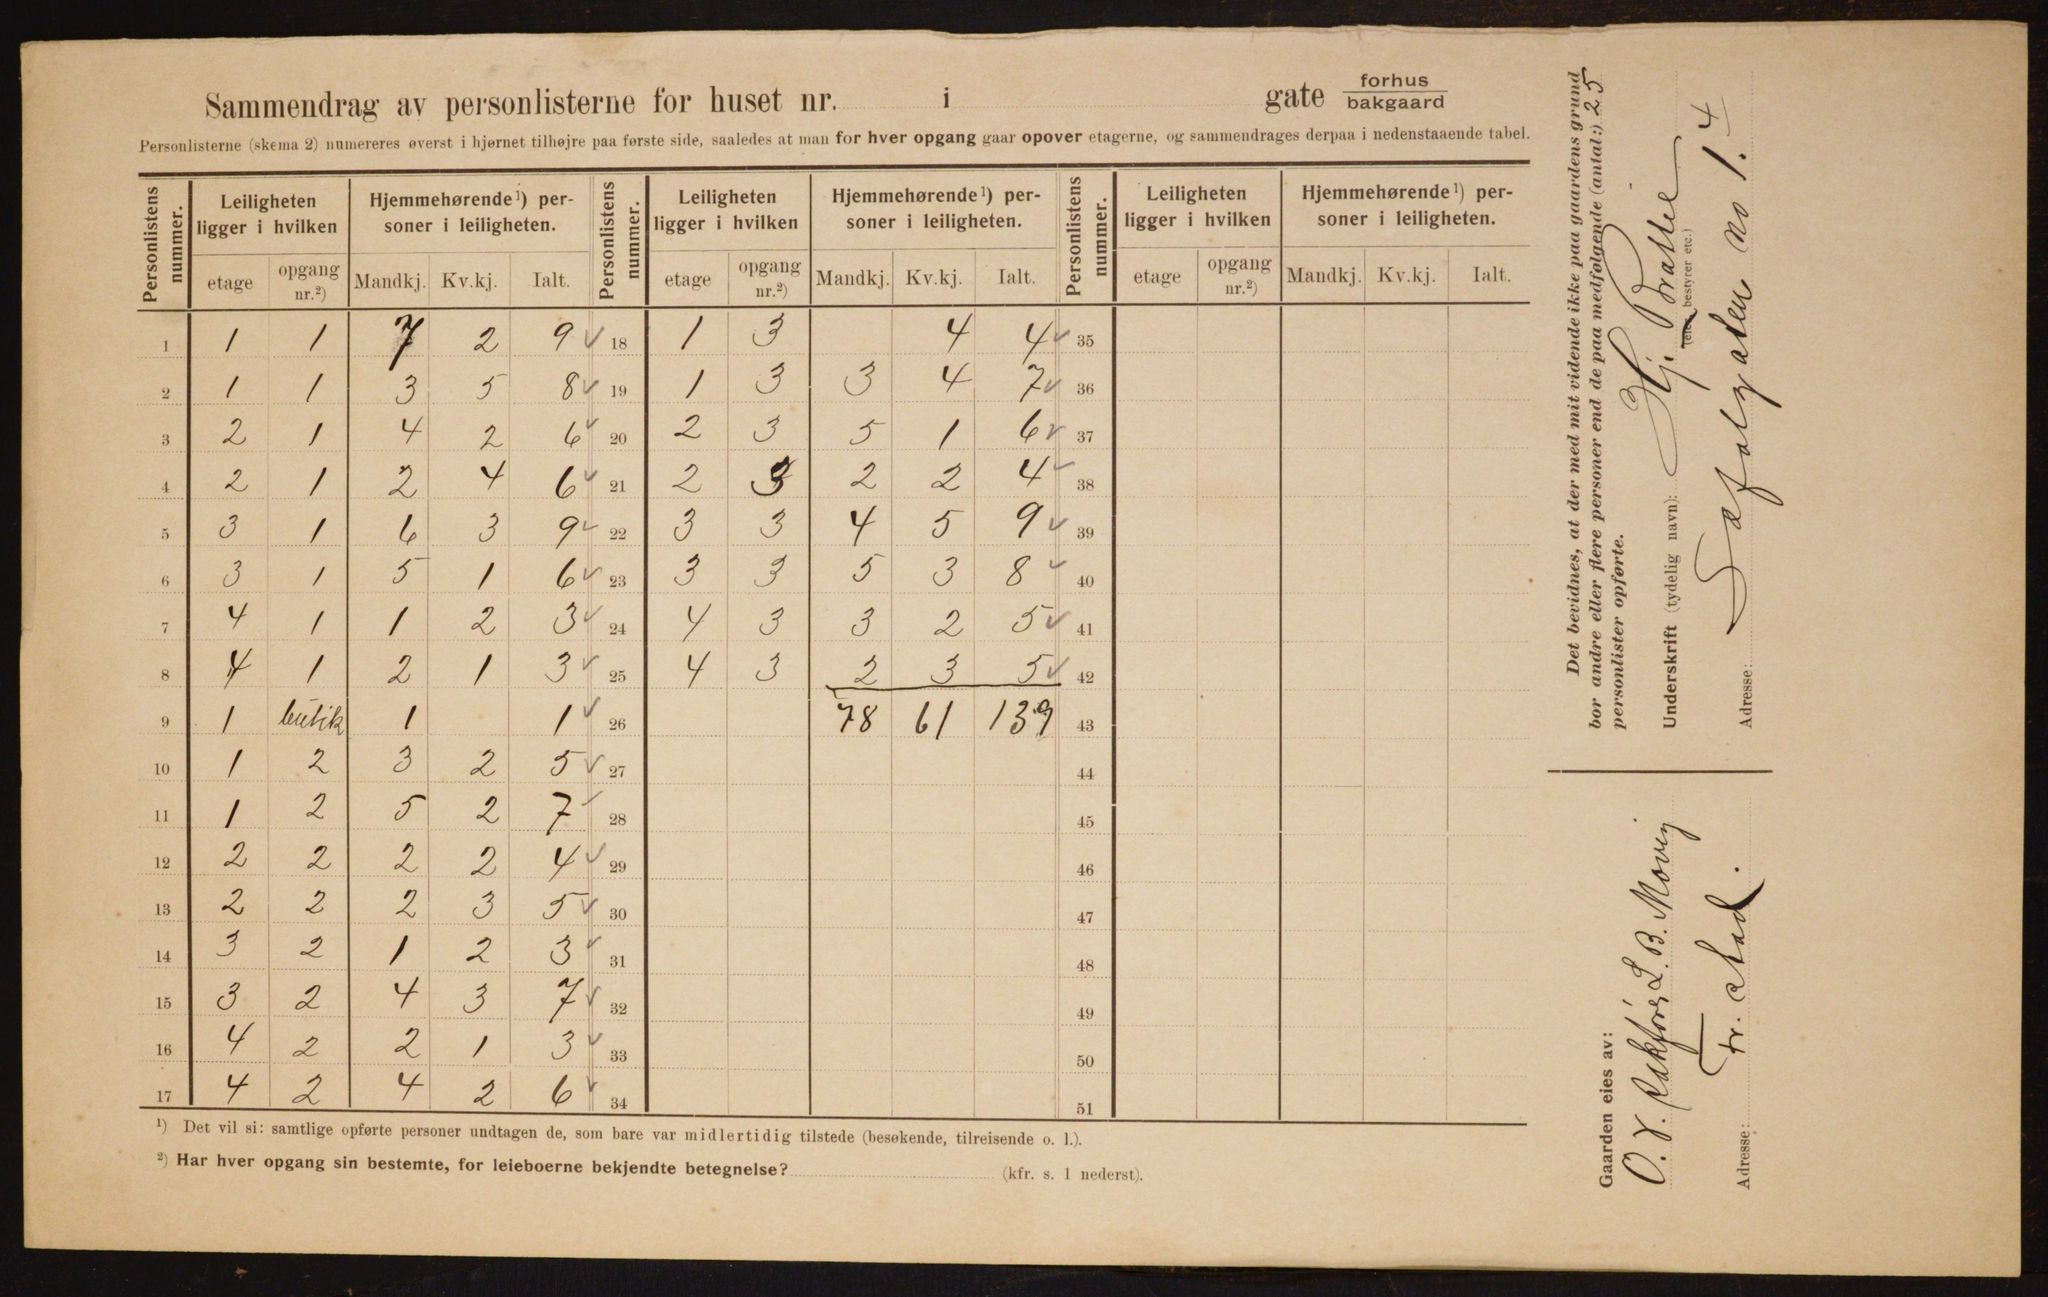 Sammendrag av personlisterne for huset nr. i gate forhus bakgaard
Personlisterne (skema 2) numereres øverst i hjørnet tilhøjre paa første side, saaledes at man for hver opgang gaar opover etagerne, og sammendrages derpaa i nedenstaaende tabel.
Personlistens nummer. Leiligheten ligger i hvilken Hjemmehørende¹) personer i leiligheten. Personlistens nummer. Leiligheten ligger i hvilken Hjemmehørende¹) personer i leiligheten. Personlistens nummer. Leiligheten ligger i hvilken Hjemmehørende¹) personer i leiligheten.
etage opgang nr.²) Mandkj. Kv.kj. Ialt. etage opgang nr.²) Mandkj. Kv.kj. Ialt. etage opgang nr.²) Mandkj. Kv.kj. Ialt.
1 1 1 7 2 9 ✓ 18 1 3 4 4 ✓ 35
2 1 1 3 5 8 ✓ 19 1 3 3 4 7 ✓ 36
3 2 1 4 2 6 ✓ 20 2 3 5 1 6 ✓ 37
4 2 1 2 4 6 ✓ 21 2 3 2 2 4 ✓ 38
5 3 1 6 3 9 ✓ 22 3 3 4 5 9 ✓ 39
6 3 1 5 1 6 ✓ 23 3 3 5 3 8 ✓ 40
7 4 1 1 2 3 ✓ 24 4 3 3 2 5 ✓ 41
8 4 1 2 1 3 ✓ 25 4 3 2 3 5 ✓ 42
9 1 butik 1 1 ✓ 26 78 61 139 43
10 1 2 3 2 5 ✓ 27 44
11 1 2 5 2 7 ✓ 28 45
12 2 2 2 2 4 ✓ 29 46
13 2 2 2 3 5 ✓ 30 47
14 3 2 1 2 3 ✓ 31 48
15 3 2 4 3 7 ✓ 32 49
16 4 2 2 1 3 ✓ 33 50
17 4 2 4 2 6 ✓ 34 51
¹) Det vil si: samtlige opførte personer undtagen de, som bare var midlertidig tilstede (besøkende, tilreisende o. l.).
²) Har hver opgang sin bestemte, for leieboerne bekjendte betegnelse? (kfr. s. 1 nederst).
Det bevidnes, at der med mit vidende ikke paa gaardens grund
bor andre eller flere personer end de paa medfølgende (antal:) 25
personlister opførte.
Underskrift (tydelig navn): Hj. Brattlie
(eier, bestyrer etc.)
Adresse: no 1. 4
Gaarden eies av:
L. B. Moving
Adresse: Fr. stad.